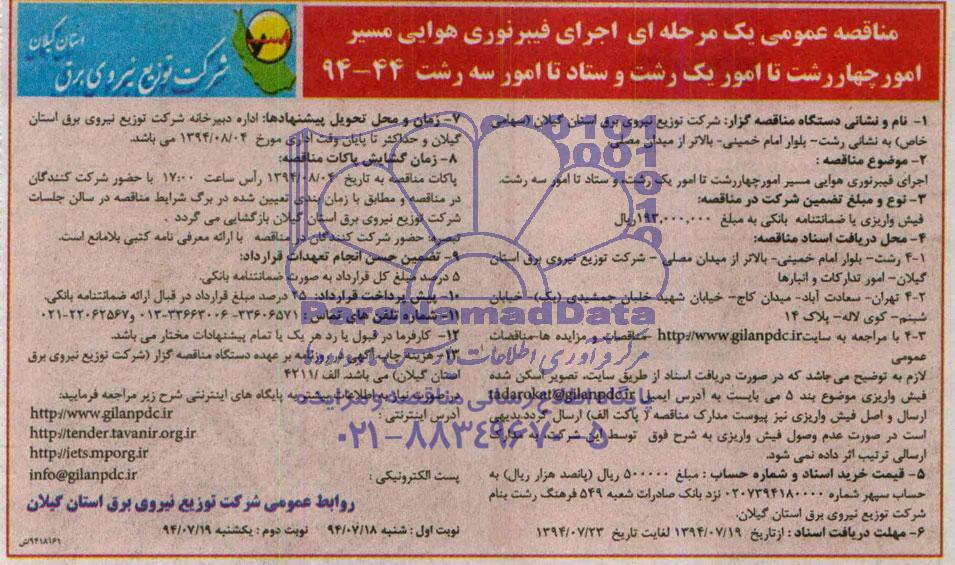 مناقصه عمومی یک مرحله ای اجرای فیبرنوری هوایی مسیر
امور چهار رشت تا امور یک رشت و ستاد تا امور سه رشت ۴۴-۹۴
استان گیلان
شرکت توزیع نیروی برق
۱- نام و نشانی دستگاه مناقصه گزار: شرکت توزیع نیروی برق استان گیلان (سهامی
خاص) به نشانی رشت- بلوار امام خمینی- بالاتر از میدان مصلی.
۲- موضوع مناقصه :
اجرای فیبرنوری هوایی مسیر امور چهار رشت تا امور یک رشت، و ستاد تا امور سه رشت.
۳- نوع و مبلغ تضمین شرکت در مناقصه:
فیش واریزی یا ضمانتنامه بانکی به مبلغ ۱۹۳,۰۰۰,۰۰۰ریال
۴- محل دریافت اسناد مناقصه:
۴-۱ رشت- بلوار امام خمینی- بالاتر از میدان مصلی - شرکت توزیع نیروی برق استان
گیلان- امور تدارکات و انبارها
۴-۲ تهران- سعادت آباد- میدان کاج- خیابان شهید خلبان جمشیدی (یک)- خیابان
شبنم- کوی لاله- پلاک ۱۴
۴-۳ با مراجعه به سایت http://www.gilanpdc.ir -مناقصات و مزایده ها-مناقصات
عمومی
لازم به توضیح می باشد که در صورت دریافت اسناد از طریق سایت، تصویر اسکن شده
فیش واریزی موضوع بند ۵ می بایست به آدرس ایمیل tadarokat@gilanpdc.ir
ارسال و اصل فیش واریزی نیز پیوست مدارک مناقصه ( پاکت الف) ارسال گردد.بدیهی
است در صورت عدم وصول فیش واریزی به شرح فوق توسط این شرکت، به مدارک
ارسالی ترتیب اثر داده نمی شود.
۵- قیمت خرید اسناد و شماره حساب : مبلغ ۵۰۰۰۰۰ ریال (پانصد هزار ریال) به
حساب سپهر شماره ۰۲۰۷۳۹۴۱۸۰۰۰۰ نزد بانک صادرات شعبه ۵۴۹ فرهنگ رشت بنام
شرکت توزیع نیروی برق استان گیلان.
۶- مهلت دریافت اسناد : ازتاریخ ۱۳۹۴/۰۷/۱۹ لغایت تاریخ ۱۳۹۴/۰۷/۲۳
۷- زمان و محل تحویل پیشنهادها: اداره دبیرخانه شرکت توزیع نیروی برق استان
گیلان و حداکثر تا پایان وقت اداری مورخ ۱۳۹۴/۰۸/۰۴ می باشد.
۸- زمان گشایش پاکات مناقصه:
پاکات مناقصه به تاریخ ۱۳۹۴/۰۸/۰۴ رأس ساعت ۱۷:۰۰ با حضور شرکت کنندگان
در مناقصه و مطابق با زمان بندی تعیین شده در برگ شرایط مناقصه در سالن جلسات
شرکت توزیع نیروی برق استان گیلان بازگشایی می گردد .
تبصره: حضور شرکت کنندگان در مناقصه با ارائه معرفی نامه کتبی بلامانع است.
۹- تضمین حسن انجام تعهدات قرارداد:
۵ درصد مبلغ کل قرارداد به صورت ضمانتنامه بانکی.
۱۰- پیش پرداخت قرارداد: ۲۵ درصد مبلغ قرارداد در قبال ارائه ضمانتنامه بانکی.
۱۱- شماره تلفن های تماس : ۳۳۶۰۶۵۷۱- ۳۳۶۶۳۰۰۶-۰۱۳ و ۲۲۰۶۲۵۶۷-۰۲۱
۱۲- کارفرما در قبول یا رد هر یک یا تمام پیشنهادات مختار می باشد.
۱۳- هزینه چاپ آگهی در روزنامه بر عهده دستگاه مناقصه گزار (شرکت توزیع نیروی برق
استان گیلان) می باشد. الف /۴۲۱۱
در صورت نیاز به اطلاعات بیشتر به پایگاه های اینترنتی شرح زیر مراجعه فرمایید:
آدرس اینترنتی : http://www.gilanpdc.ir
http://tender.tavanir.org.ir
http://iets.mporg.ir
پست الکترونیکی : info@gilanpdc.ir
روابط عمومی شرکت توزیع نیروی برق استان گیلان
نوبت اول: شنبه ۹۴/۰۷/۱۸ نوبت دوم : یکشنبه ۹۴/۰۷/۱۹
۹۴۱۸۱۶۱/ش
ParsNamadData
۰۲۱-۸۸۳۴۹۶۷۰-۵